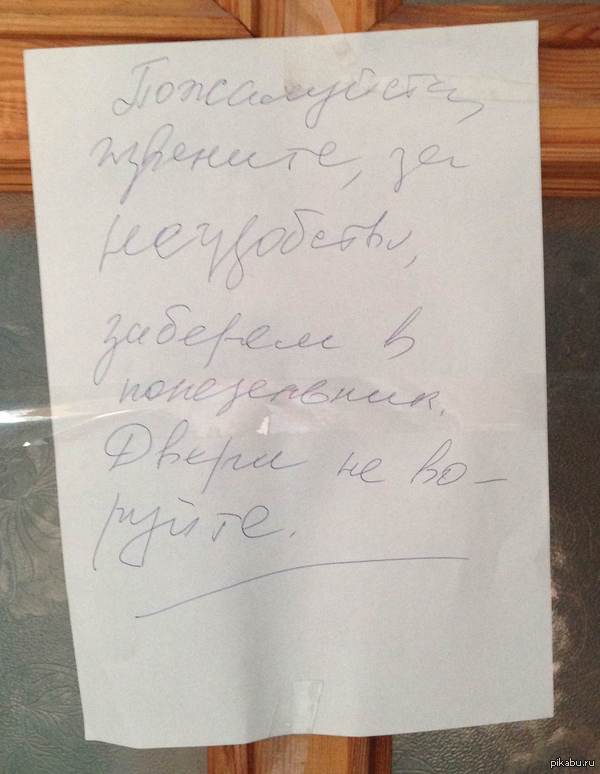 Пожалуйста,
извените, за
неудобствы,
заберем в
понедельник.
Двери не во-
руйте.
pikabu.ru